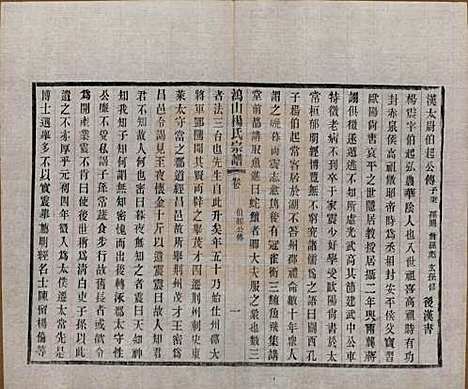 漢太尉伯起公傳 子秉 孫賜 曾孫彪 玄孫修 後漢書
楊震字伯起弘農華陰人也八世祖喜高祖時有功
封赤泉侯高祖敞昭帝時為丞相封安平侯父寶習
歐陽尚書哀平之世隱居教授居攝二年與兩龔蔣
詡俱徵遂遁逃不知所處光武高其節建武中公車
特徵老病不到卒於家震少好學受歐陽尚書於太
常桓郁明經博覽無不窮究諸儒為之語曰關西孔
子楊伯起常客居於湖不答州郡禮命數十年眾人
謂之晚暮而震志愈篤後有冠雀銜三鱣魚飛集講
堂前都講取魚進曰蛇鱣者卿大夫服之象也數三
鴻山楊氏宗譜 卷 伯起公傳 一
者法三台也先生自此升矣年五十乃始仕州郡大
將軍鄧騭聞其賢而辟之舉茂才四遷荊州刺史東
萊太守當之郡道經昌邑故所舉荊州茂才王密為
昌邑令謁見至夜懷金十斤以遺震震曰故人知君
君不知故人何也密曰暮夜無知之者震曰天知神
知我知子知何謂無知密愧而出後轉涿郡太守性
公廉不受私謁子孫常蔬食步行故舊長者或欲令
為開產業震不肯曰使後世稱為清白吏子孫以此
遺之不亦厚乎元初四年徵入為太僕遷太常先是
博士選舉多不以實震舉薦明經名士陳留楊倫等